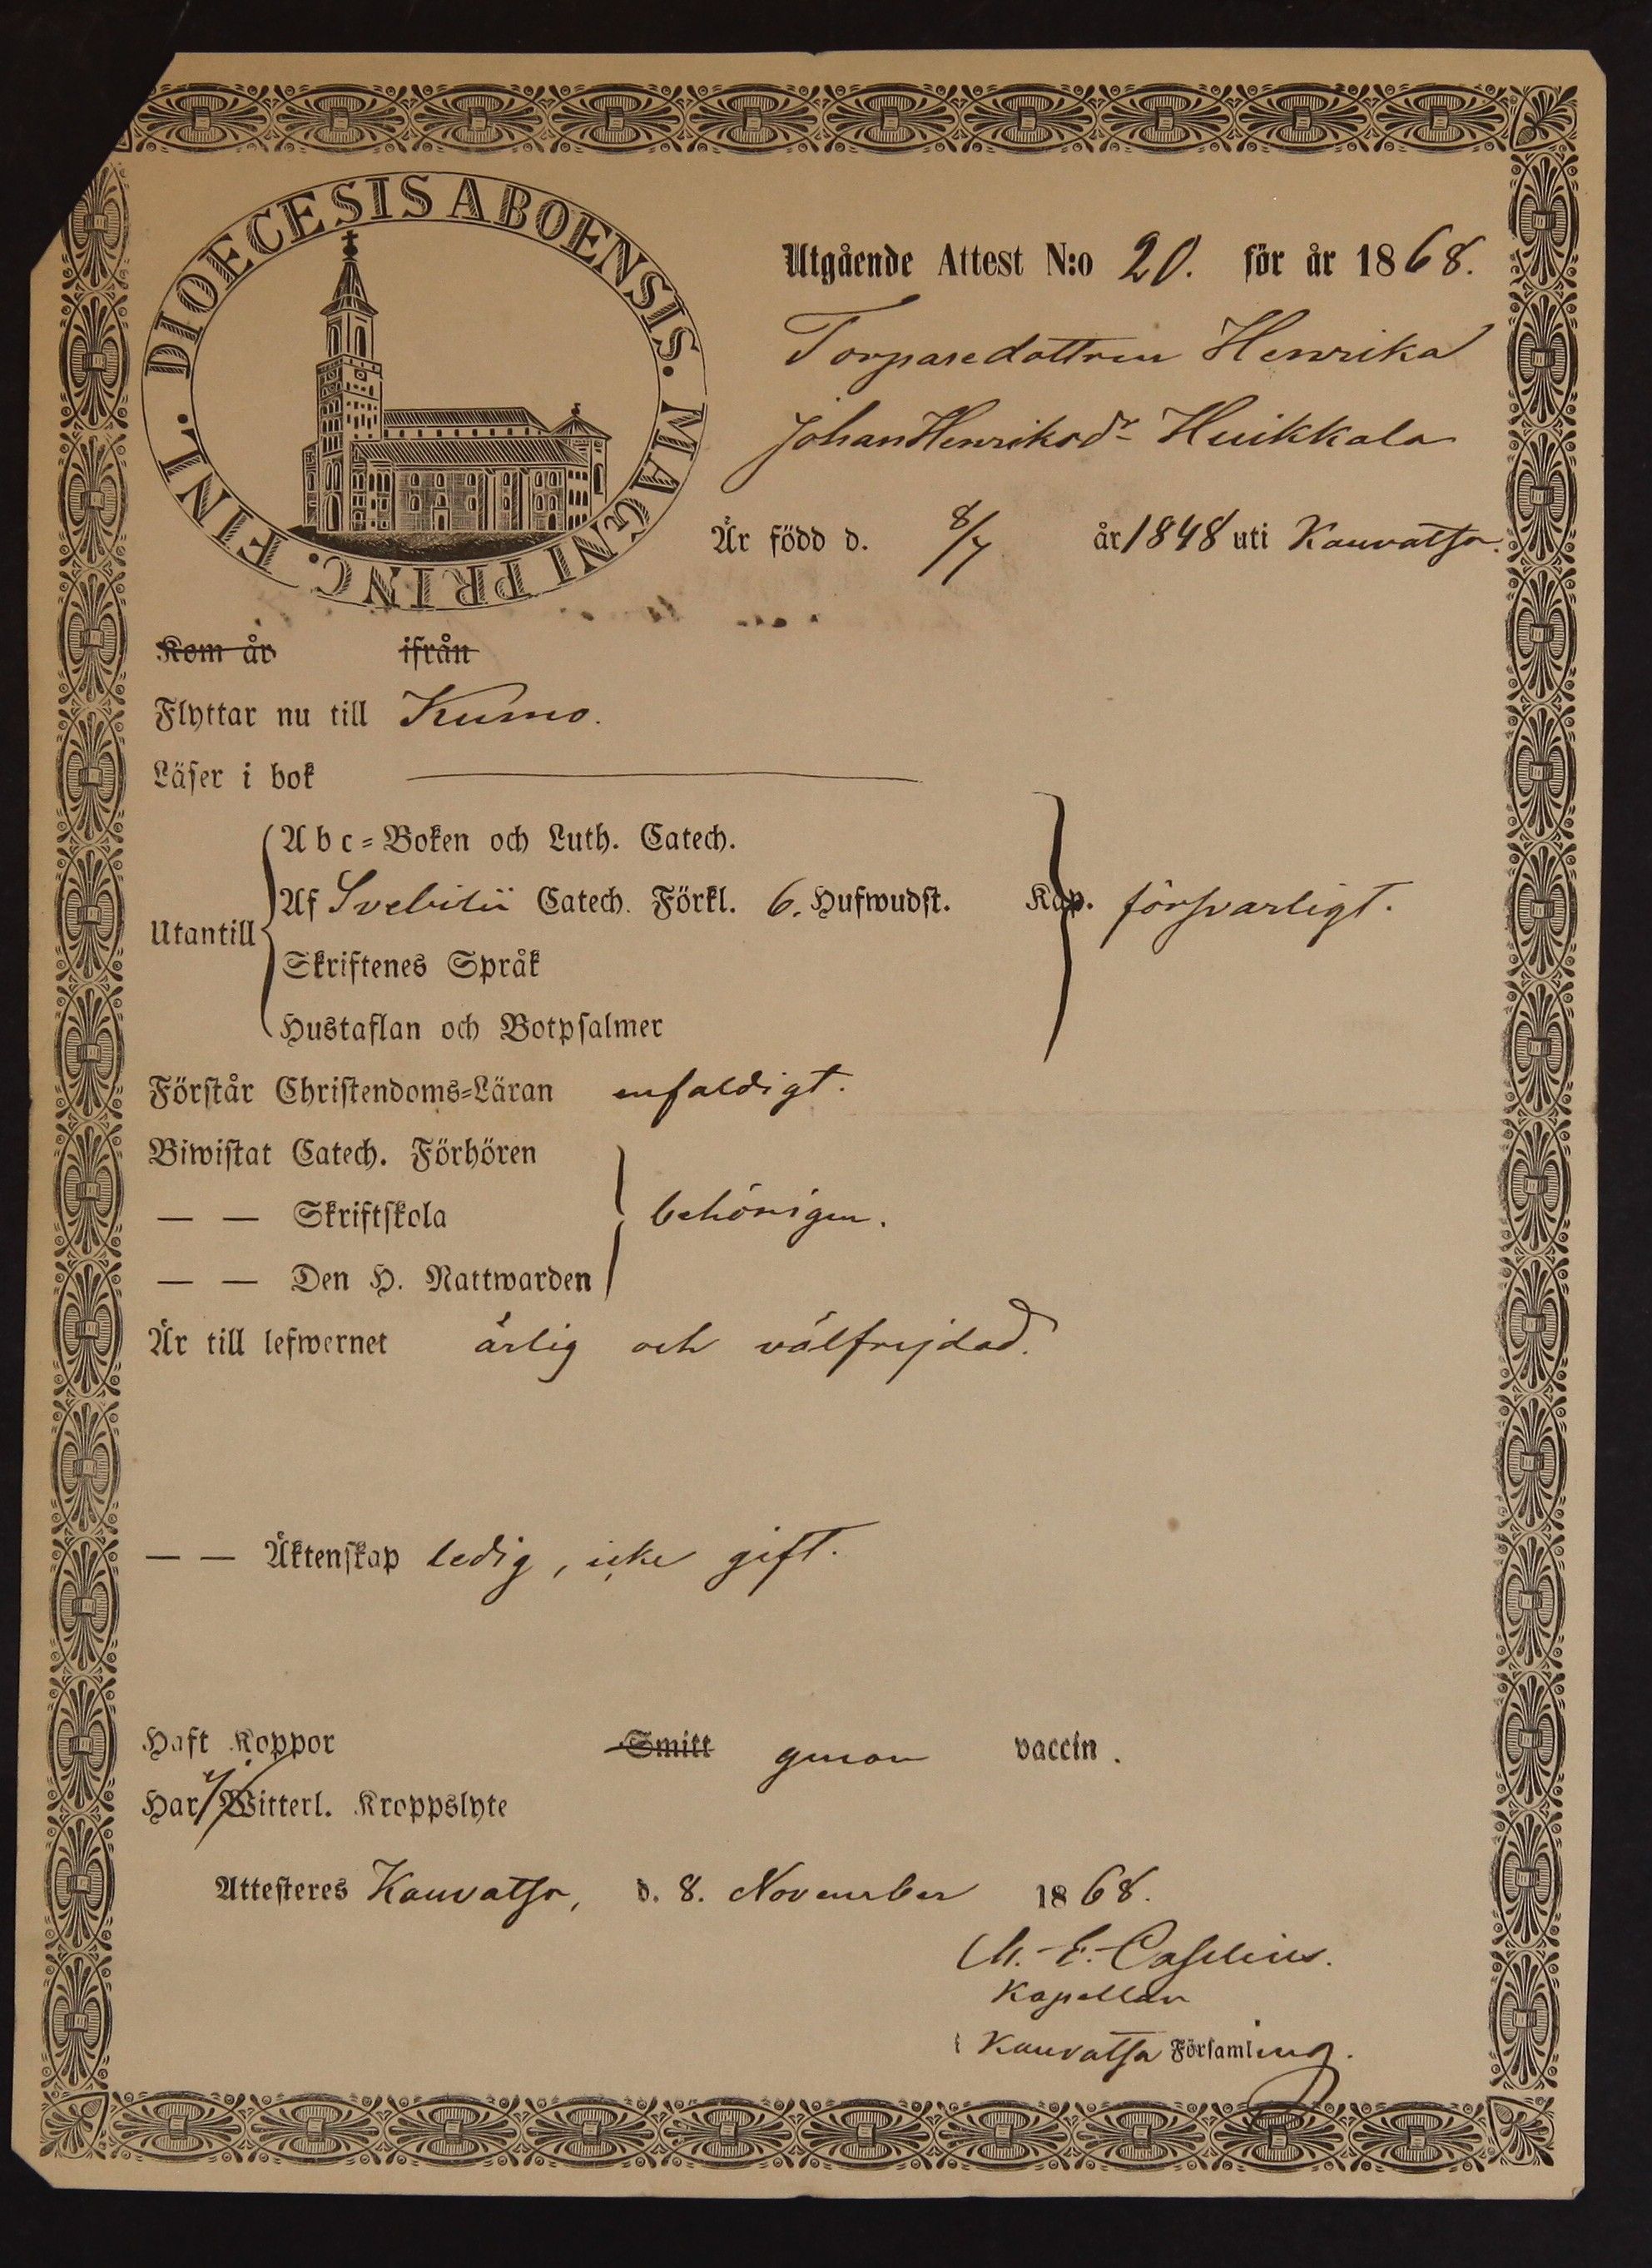 DIOECESIS ABOENSIS. MAGNI PRINC. FINL.
Utgående Attest N:o 20. för år 1868.
Torparedottren Henrika
Johan Henriksdr Huikkala
Är född d. 8/7 år 1848 uti Kauvatsa.
Kom år ifrån
Flyttar nu till Kumo.
Läser i bok
Utantill
Abc-Boken och Luth. Catech.
Af Svebilii Catech. Förkl. 6. Hufwudst. Kap. försvarligt.
Skriftenes Språk
Hustaflan och Botpsalmer
Förstår Christendoms-Läran enfaldigt.
Biwistat Catech. Förhören
— — Skriftskola behörigen.
— — Den H. Nattwarden
Är till lefwernet ärlig och välfrejdad.
— — Äktenskap ledig, icke gift.
Haft Koppor Smitt genom vaccin.
Har Witterl. Kroppslyte
Attesteres Kauvatsa, d. 8. November 1868.
M. E. Caselius.
Kapellan
i Kauvatsa Församling.